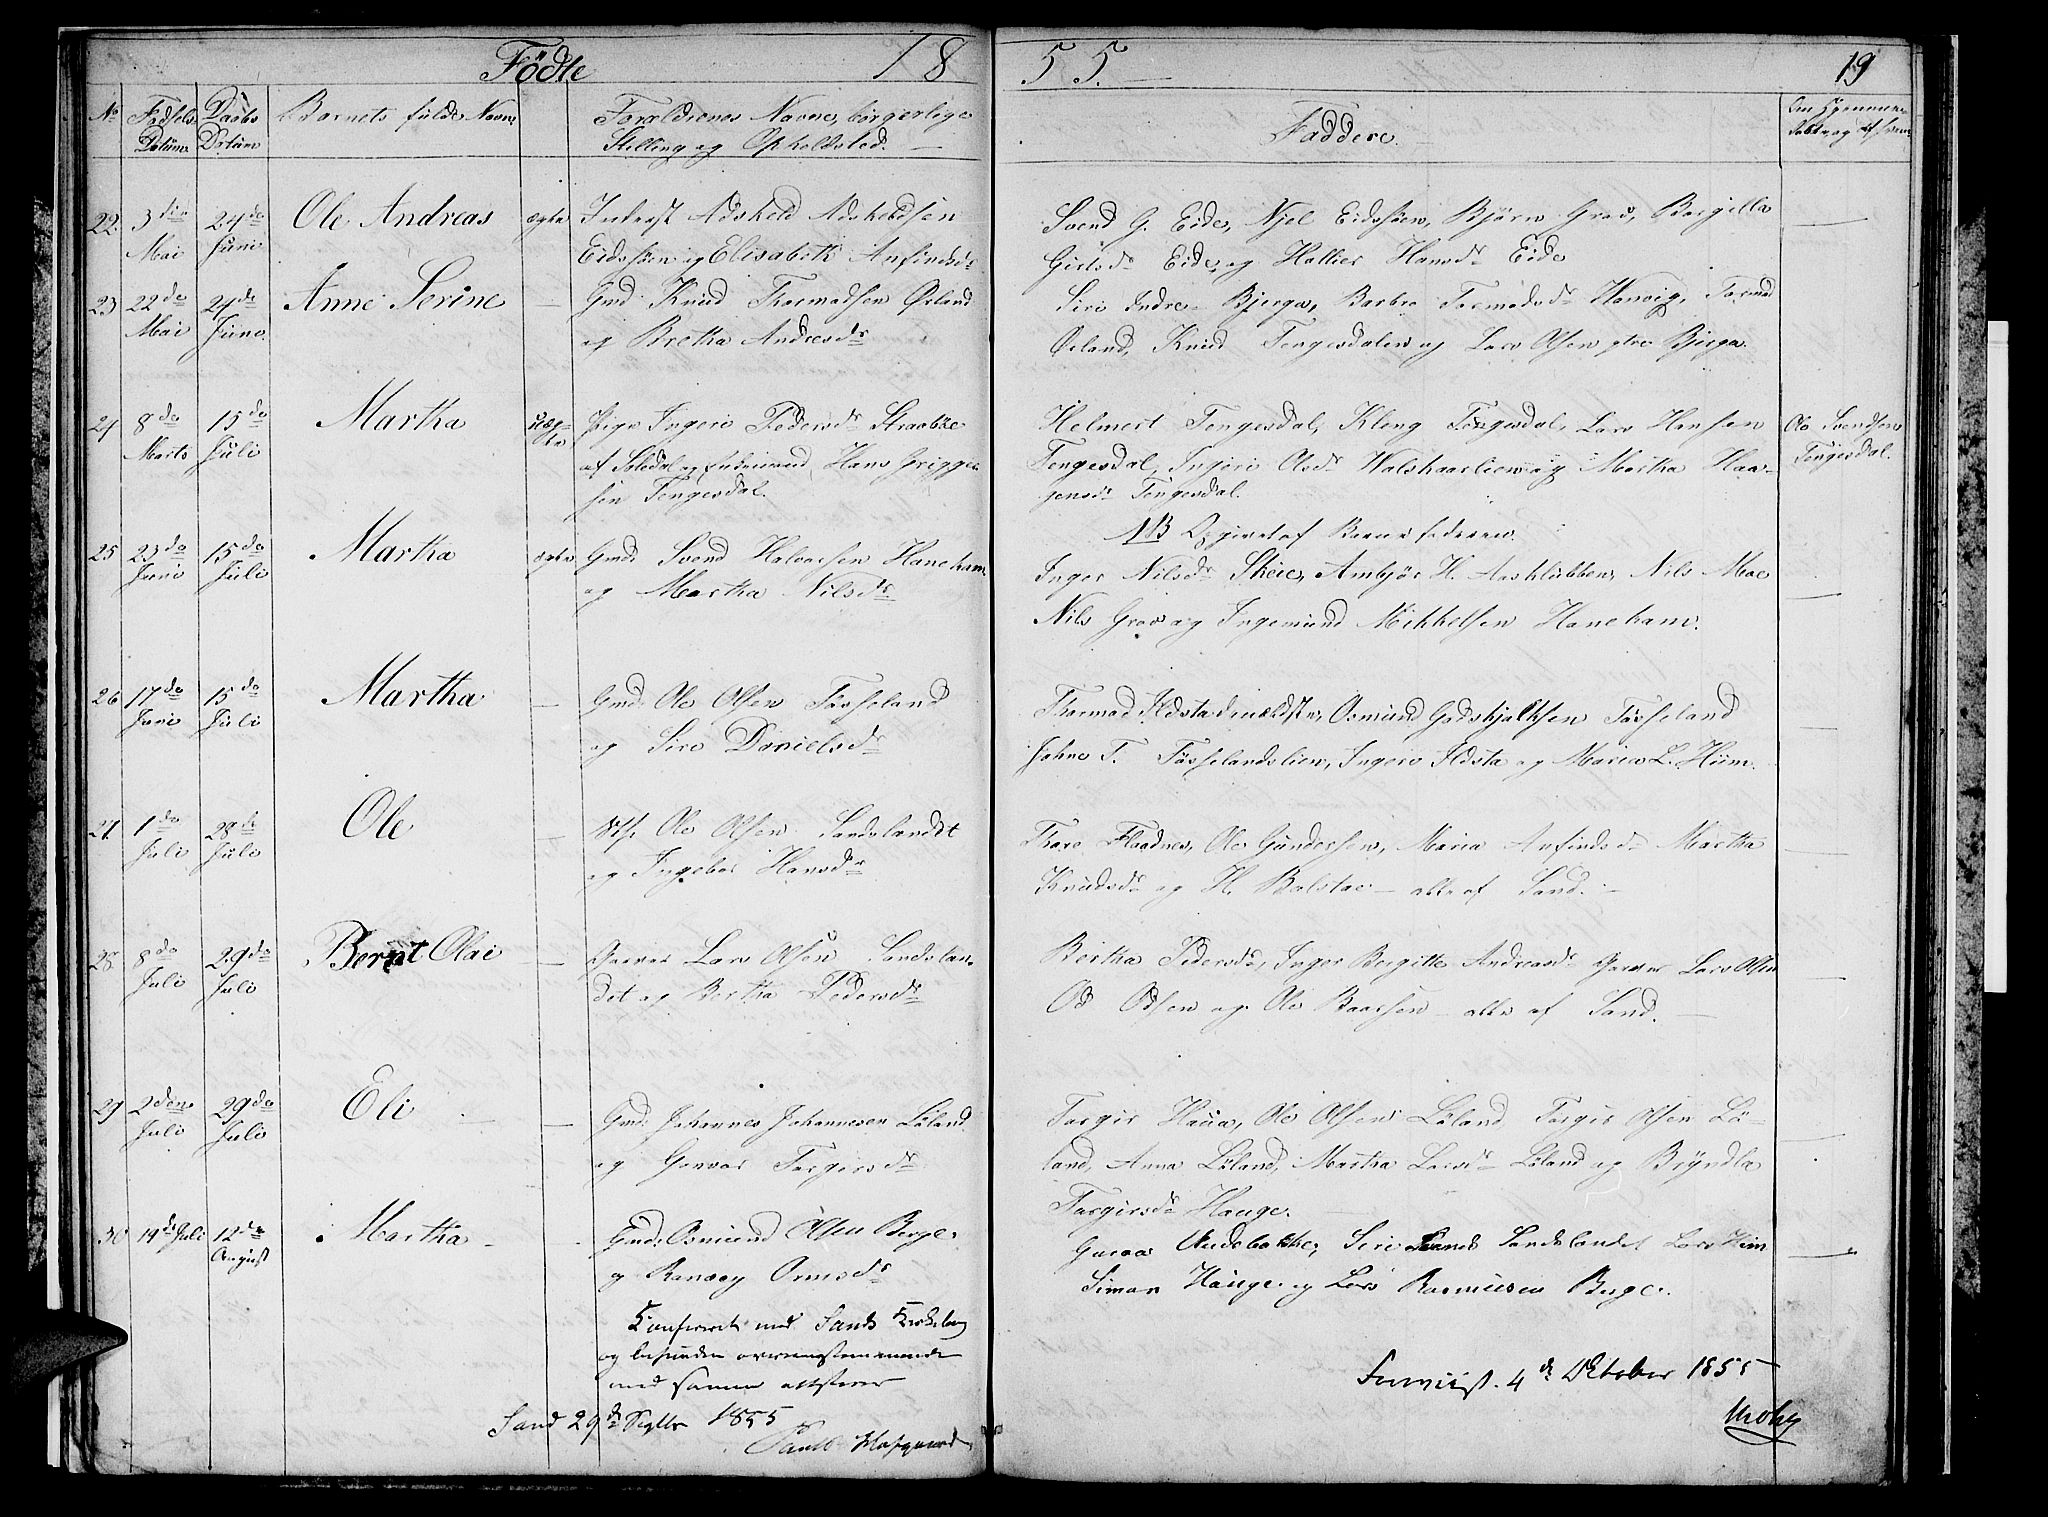 Födte 1855. 19
No Födsels Datum Daabs Datum Barnets fulde Navn Forældrenes Navne, borgerlige Stilling og Opholdsted. Faddere.
22. 3die Mai 24de Juni Ole Andreas ægte Inderst Adskeld Adskeldsen
Eidssöen og Elisabeth Anfindsdr
Svend G. Eide, Njel Eidssöen, Björn Grov, Bergitte
Girtsdr Eide, og Hallier Hansdr Eide
23 22de Mai 24de Juni Anne Serine — Gmd. Knud Thormodsen Örland
og Bretha Andresdr
Siri Indre Bjerga, Barbro Tormodsdr Hanvig, Tormod
Örland, Knud Tengesdalen og Lars Olsen ytre Bjerga
24 8de Marts 15de Juli Martha uægte Pige Ingeri Pedersdr Straaböe
af Soledal og Hans Grigger-
sen Tengesdal.
Helmert Tengesdal, Kleng Tengesdal, Lars Hansen
Tengesdal, Ingeri Olsdr Walskaarlien og Martha Haa-
gensdr Tengesdal.
Ole Svendsen
Tengesdal.
NB Opgivet af Barnefaderen.
25 23de Juni 15de Juli Martha ægte Gmd. Svend Halvorsen Haneham
og Martha Nilsdr
Inger Nilsdr Skeie, Ambjör H. Aasklubben, Nils Moe
Nils Grov og Ingemund Mikkelsen Haneham.
26 17de Juni 15de Juli Martha — Gmd. Ole Olsen Fösseland
og Siri Danielsdr
Thormod Ildsta Osmund Godskjalksen Fösseland
Johne T. Fösselandslien, Ingeri Ildsta og Maria L. Hiim.
27. 1de Juli 28de Juli Ole — Ole Olsen Sandslandet
og Ingebor Hansdr
Thore Flaadnes, Ole Gundersen, Maria Anfindsdr Martha
Knudsdr og H. Balstae — alle af Sand. —
28 8de Juli 29de Juli Bernt Olai — Garver Lars Olsen Sandslan-
det og Bertha Pedersdr
Bertha Pedersdr, Inger Bergitte Andreasdr Garver Lars Olsen
Od Odsen og Ole Baarsen — alle af Sand. —
29 2den Juli 29de Juli Eli — Gmd. Johannes Johannesen Löland
og Gunvor Torgersdr
Torgir Haua, Ole Olsen Löland Torgir Olsen Lö-
land, Anna Löland, Martha Larsdr Löland og Bryndla
Torgirsdr Hauge.
30 19de Juli 12de August Martha — Gmd. Osmund Olsen Berge.
og Ranvey Ormsdr
Siri Sandslandet Lars Hiim
Simon Hauge og Lars Rasmussen Berge.
Confereret med Sands Kirkebog
og befunden overensstemmende
med samme attesterer
Sand 29de Septbr 1855
4de Oktober 1855